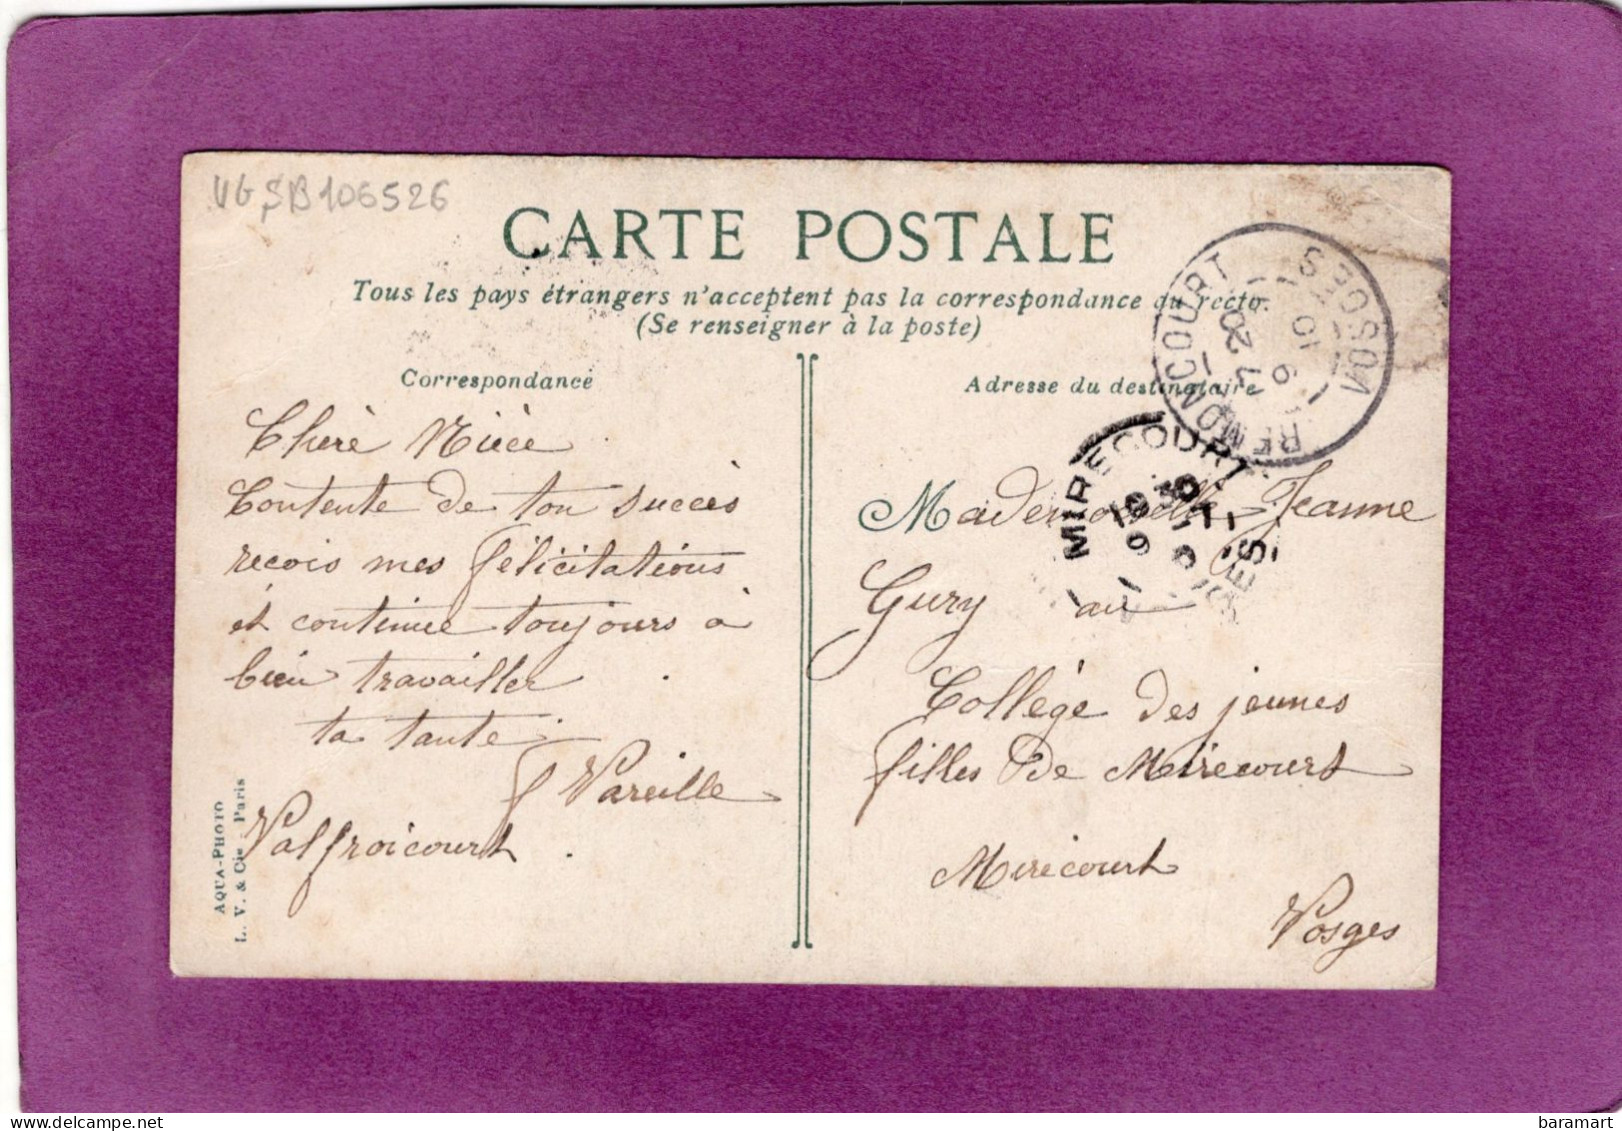 CARTE POSTALE
Tous les pays étrangers n'acceptent pas la correspondance au recto.
(Se renseigner à la poste)
Correspondance
Chère Nièce
Contente de ton succès
reçois mes félicitations
et continue toujours à
bien travailler
ta tante
Vareille
Valfroicourt
AQUA-PHOTO
L. V. & Cie Paris
Adresse du destinataire
Mademoiselle Jeanne
Gury au
Collège des jeunes
filles de Mirecourt
Mirecourt
Vosges
REMONCOURT
VOSGES
MIRECOURT
baramart